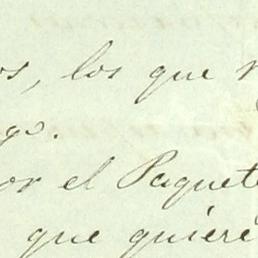 os, los que
go.
or el Paquete
que quiere